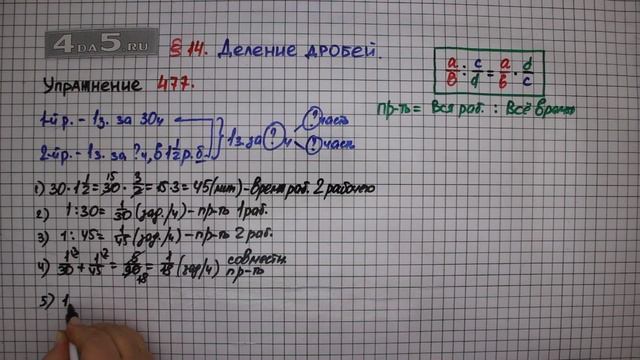 4DA5.RU
§ 14. Деление дробей.
Упражнение 477.
a/b : c/d = a/b · d/c
пр-ть = вся раб. : всё время
1-й р. - 1з. за 30ч
2-й р. - 1з. за ?ч, в 1 1/2 р. б.
1з. за ? ч
? часть
? часть
1) 30 · 1 1/2 = 30 · 3/2 = 15 · 3 = 45 (мин) - время раб. 2 рабочего
2) 1 : 30 = 1/30 (зад./ч) - пр-ть 1 раб.
3) 1 : 45 = 1/45 (зад./ч) - пр-ть 2 раб.
4) 1/30 + 1/45 = 5/90 = 1/18 (зад/ч) совместн. пр-ть
5) 1